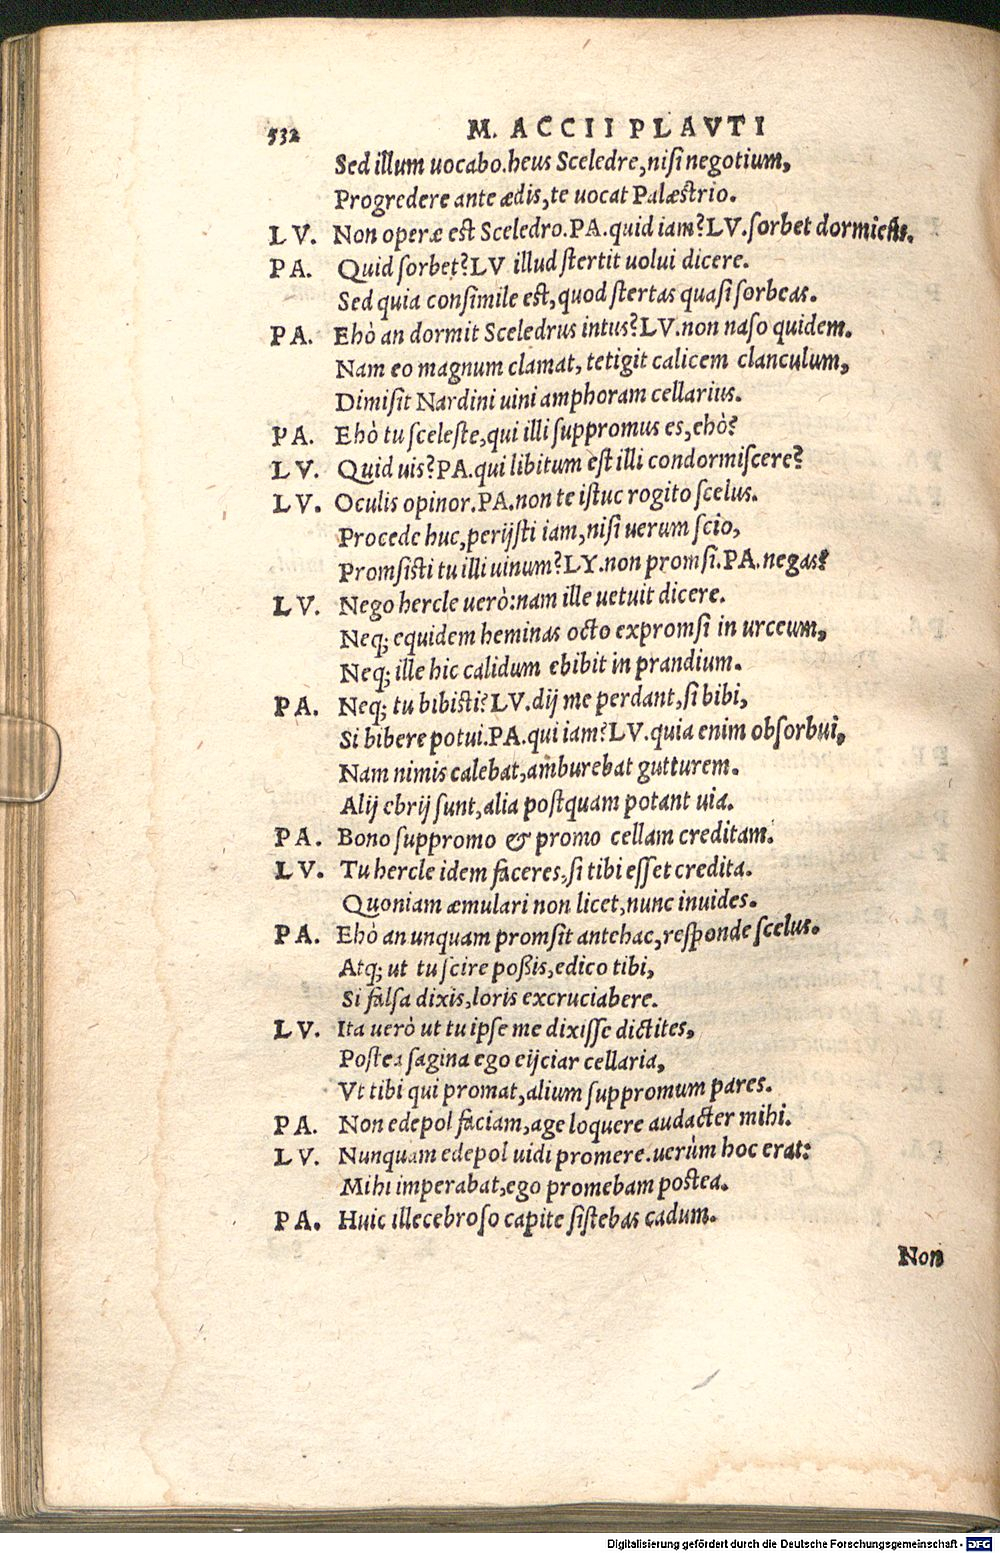 532 M. ACCII PLAVTI
Sed illum uocabo.heus Sceledre,nisi negotium,
Progredere ante ædis,te uocat Palæstrio.
LV. Non operæ est Sceledro.PA.quid iam?LV.sorbet dormiens.
PA. Quid sorbet?LV illud stertit uolui dicere.
Sed quia consimile est,quod stertas quasi sorbeas.
PA. Ehò an dormit Sceledrus intus?LV.non naso quidem.
Nam eo magnum clamat, tetigit calicem clanculum,
Dimisit Nardini uini amphoram cellarius.
PA. Ehò tu sceleste,qui illi suppromus es,ehò?
LV. Quid uis?PA.qui libitum est illi condormiscere?
LV. Oculis opinor.PA.non te istuc rogito scelus.
Procede huc,perijsti iam,nisi uerum scio,
Promsisti tu illi uinum?LY.non promsi.PA.negas?
LV. Nego hercle uerò:nam ille uetuit dicere.
Neq; equidem heminas octo expromsi in urceum,
Neq; ille hic calidum ebibit in prandium.
PA. Neq; tu bibisti?LV.dij me perdant,si bibi,
Si bibere potui.PA.qui iam?LV.quia enim obsorbui,
Nam nimis calebat,amburebat gutturem.
Alij ebrij sunt,alia postquam potant uia.
PA. Bono suppromo & promo cellam creditam.
LV. Tu hercle idem faceres,si tibi esset credita.
Quoniam æmulari non licet,nunc inuides.
PA. Ehò an unquam promsit antehac,responde scelus.
Atq; ut tu scire poßis,edico tibi,
Si falsa dixis,loris excruciabere.
LV. Ita uerò ut tu ipse me dixisse dictites,
Postea sagina ego eijciar cellaria,
Vt tibi qui promat,alium suppromum pares.
PA. Non edepol faciam,age loquere audacter mihi.
LV. Nunquam edepol uidi promere.uerùm hoc erat:
Mihi imperabat,ego promebam postea.
PA. Huic illecebroso capite sistebas cadum.
Non
Digitalisierung gefördert durch die Deutsche Forschungsgemeinschaft - DFG